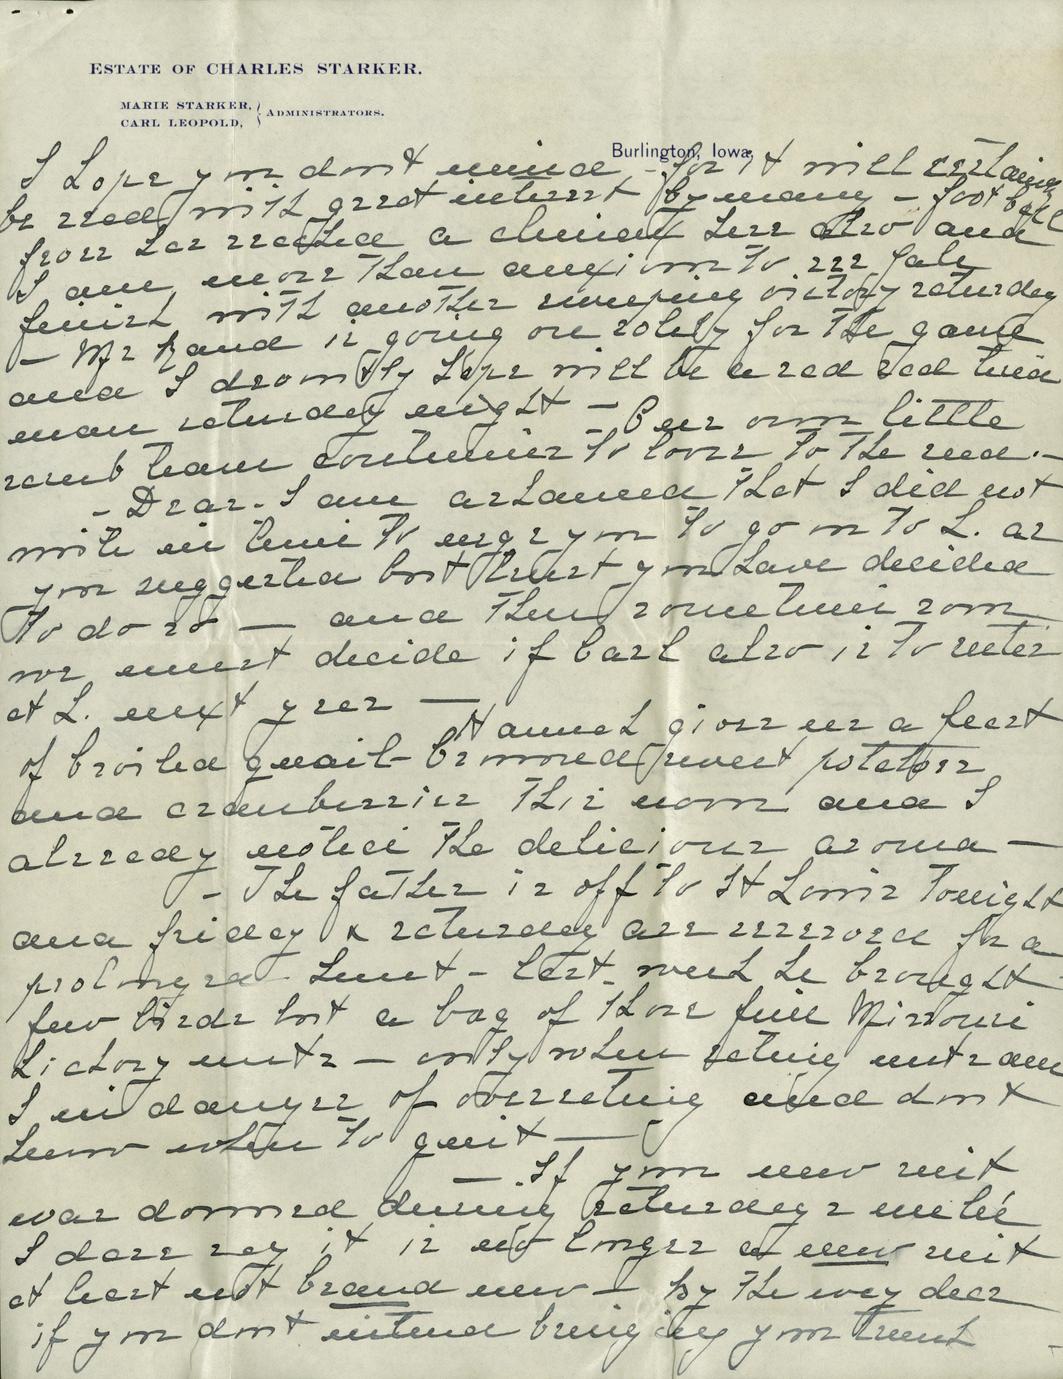 ESTATE OF CHARLES STARKER.
MARIE STARKER,
CARL LEOPOLD,
ADMINISTRATORS.
Burlington, Iowa,
I hope you dont mind - for it will certainly
be read with great interest by many - foot ball
fever has reached a climax here also and
I am more than anxious to see Yale
finish with another sweeping victory saturday
- Mr Rand is going on solely for the game
and I devoutly hope will be a sad sad tired
man saturday night - Our own little
scrub team continues to lose to the end. -
- Dear - I am ashamed that I did not
write in time to urge you to go on to L. as
you suggested but trust you have decided
to do so — and then sometime soon
we must decide if Carl also is to enter
at L. next year —
Hannah gives us a feast
of broiled quail - browned sweet potatoes
and cranberries this noon and I
already notice the delicious aroma —
- The father is off to St Louis tonight
and friday & saturday are reserved for a
prolonged hunt - last week he brought
few birds but a bag of those fine Missouri
hickory nuts - only when eating nuts am
I in danger of overeating and dont
know when to quit —
— If your new suit
was donned during saturdays melée
I dare say it is no longer a new suit
at least not brand new - by the way dear
if you dont intend bringing your trunk